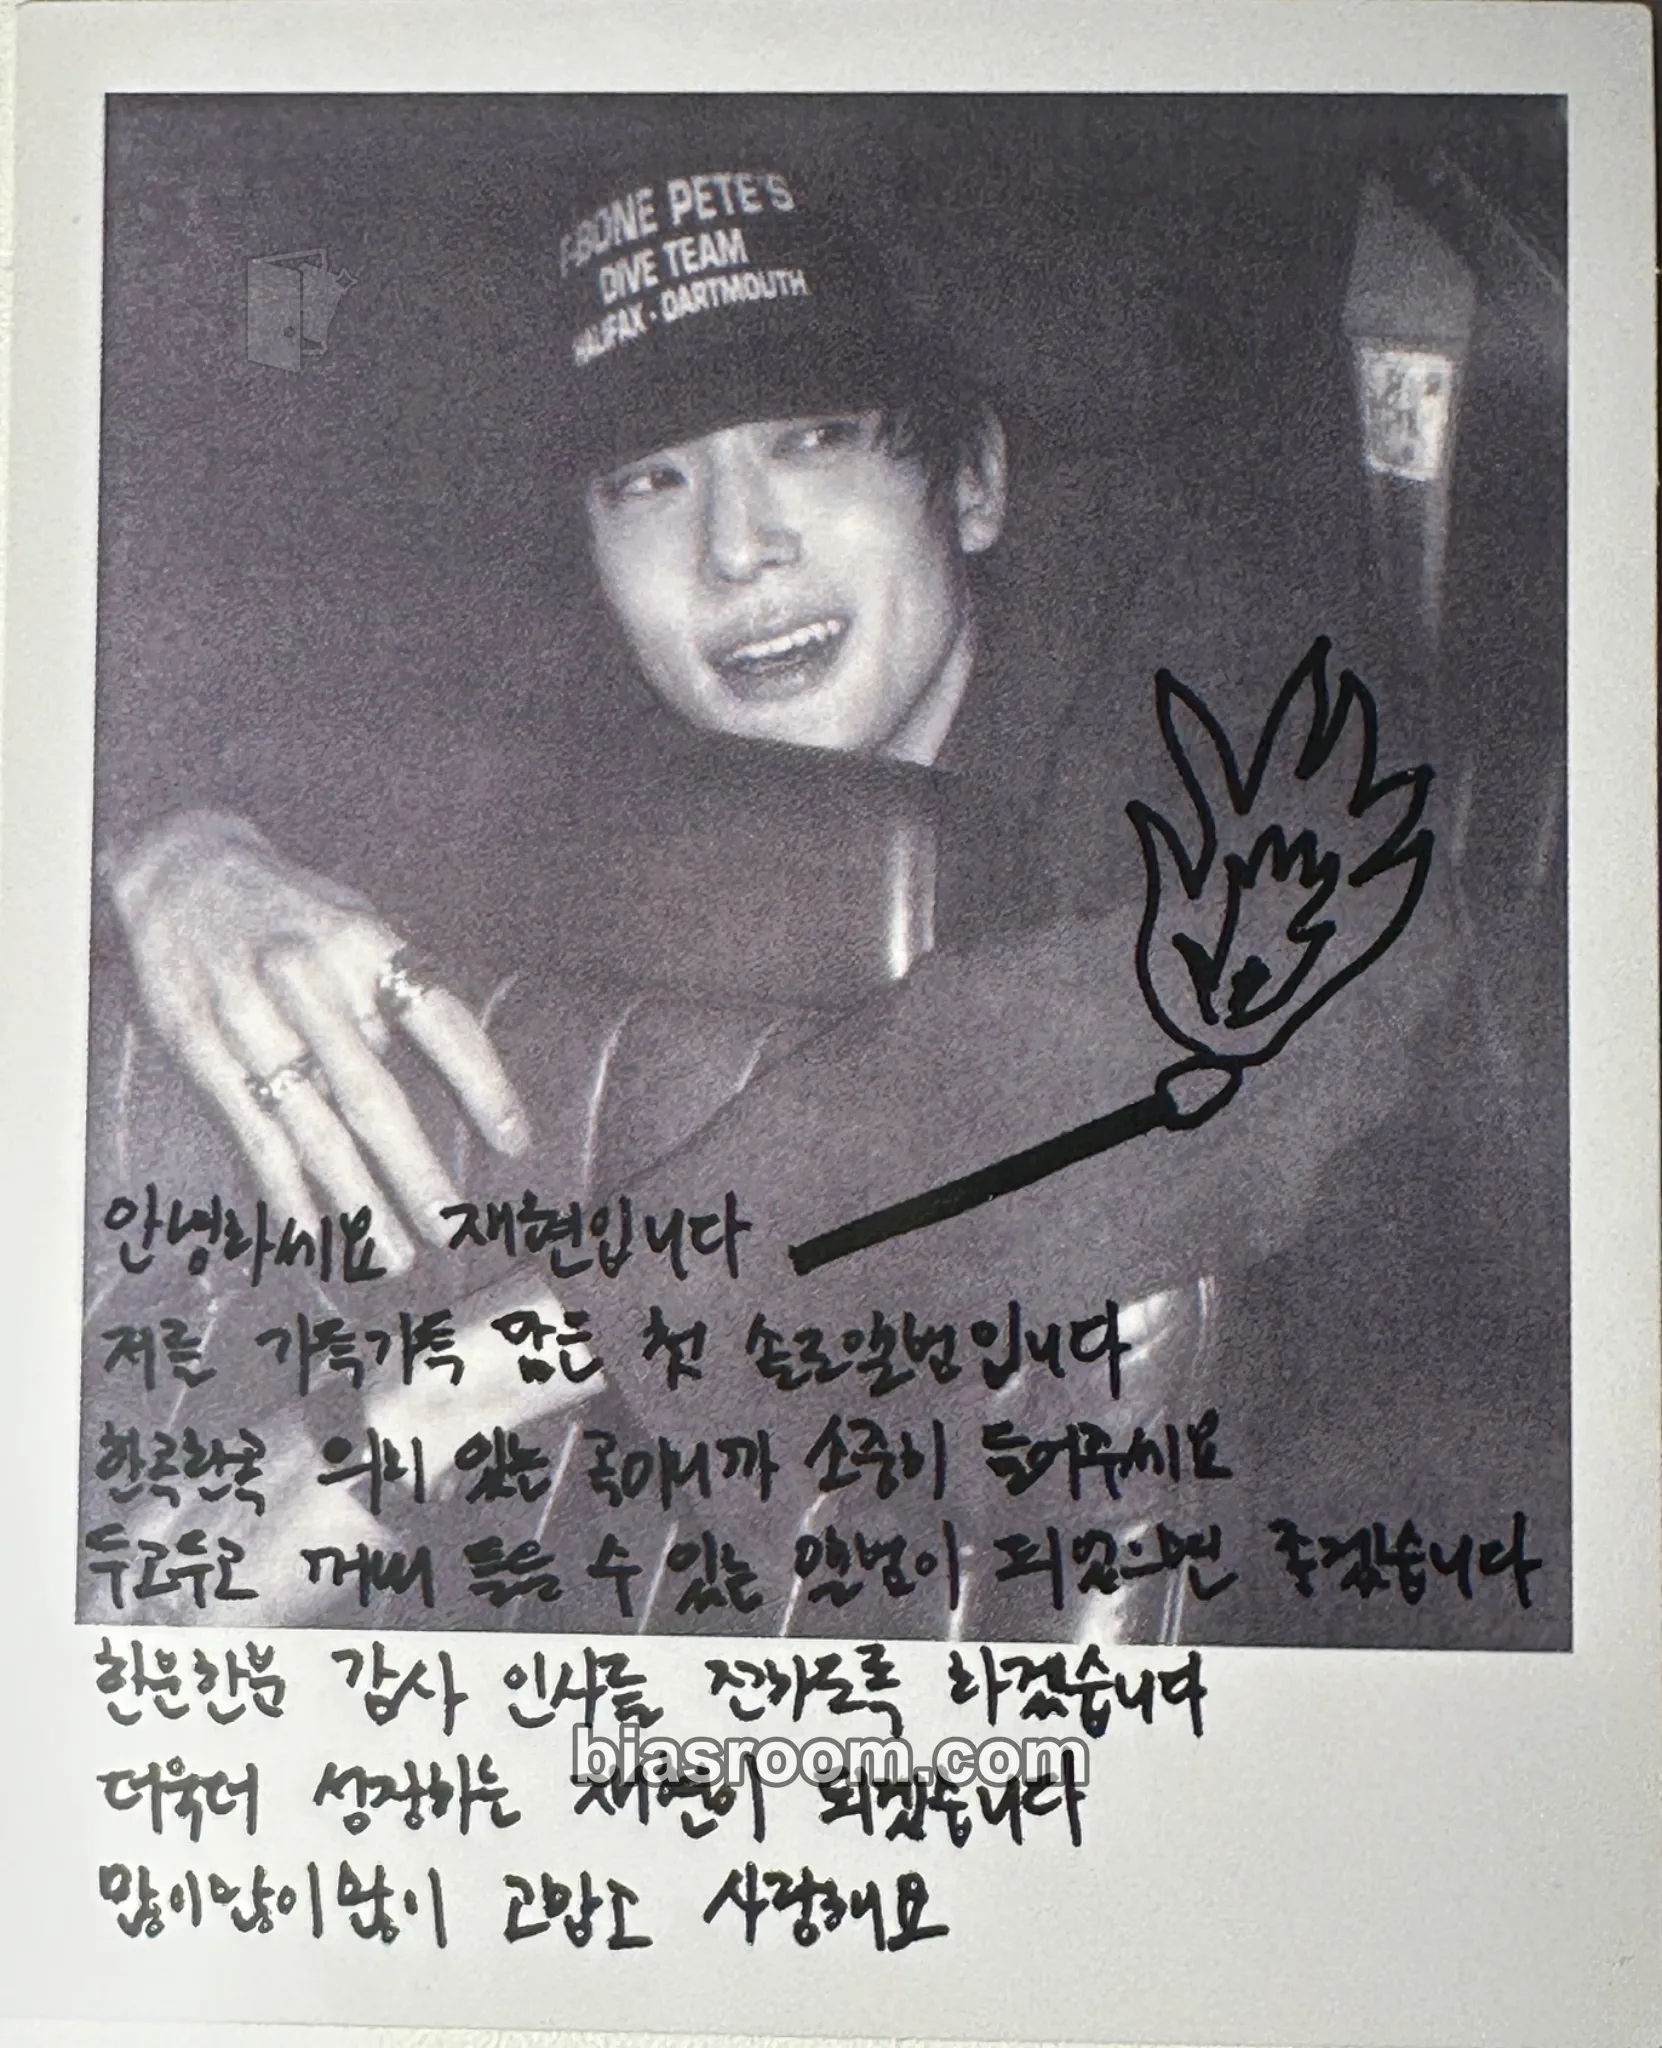 T-BONE PETE'S
DIVE TEAM
HALIFAX · DARTMOUTH
안녕하세요 재현입니다
저를 가득가득 담은 첫 솔로앨범입니다
한곡한곡 의미 있는 곡이니까 소중히 들어주세요
두고두고 꺼내 들을 수 있는 앨범이 되었으면 좋겠습니다
한분한분 감사 인사를 전하도록 하겠습니다
더욱더 성장하는 재현이 되겠습니다
많이많이많이 고맙고 사랑해요
biasroom.com